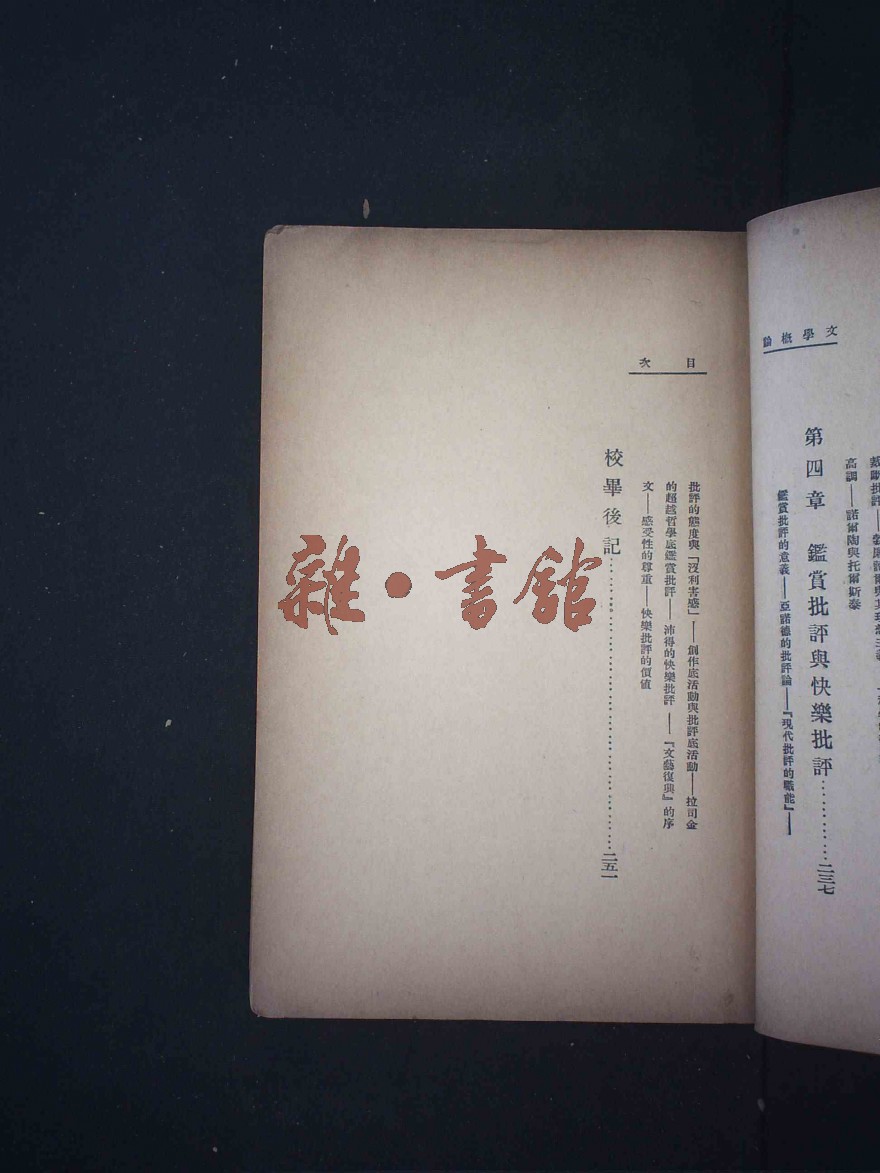 文學概論
裁斷批評——
高調——諾爾陶與托爾斯泰
第四章 鑑賞批評與快樂批評…………二三七
鑑賞批評的意義——亞諾德的批評論——『現代批評的職能』——
目次
批評的態度與「沒利害感」——創作底活動與批評底活動——拉司金
的超越哲學底鑑賞批評——沛得的快樂批評——『文藝復興』的序
文——感受性的尊重——快樂批評的價値
校畢後記…………二五一
雜·書館